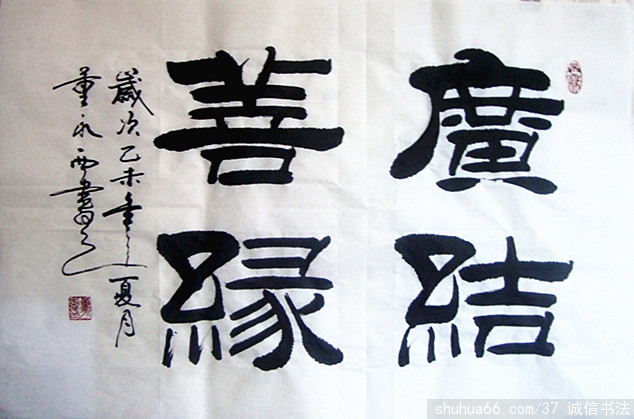 廣結
善緣
歲次乙未年之夏月
董永西書
shuhua66.com/37 诚信书法